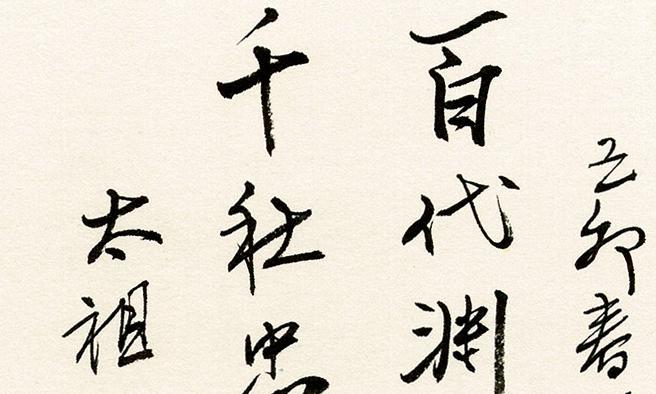 己卯春
百代渊
千社中
太祖